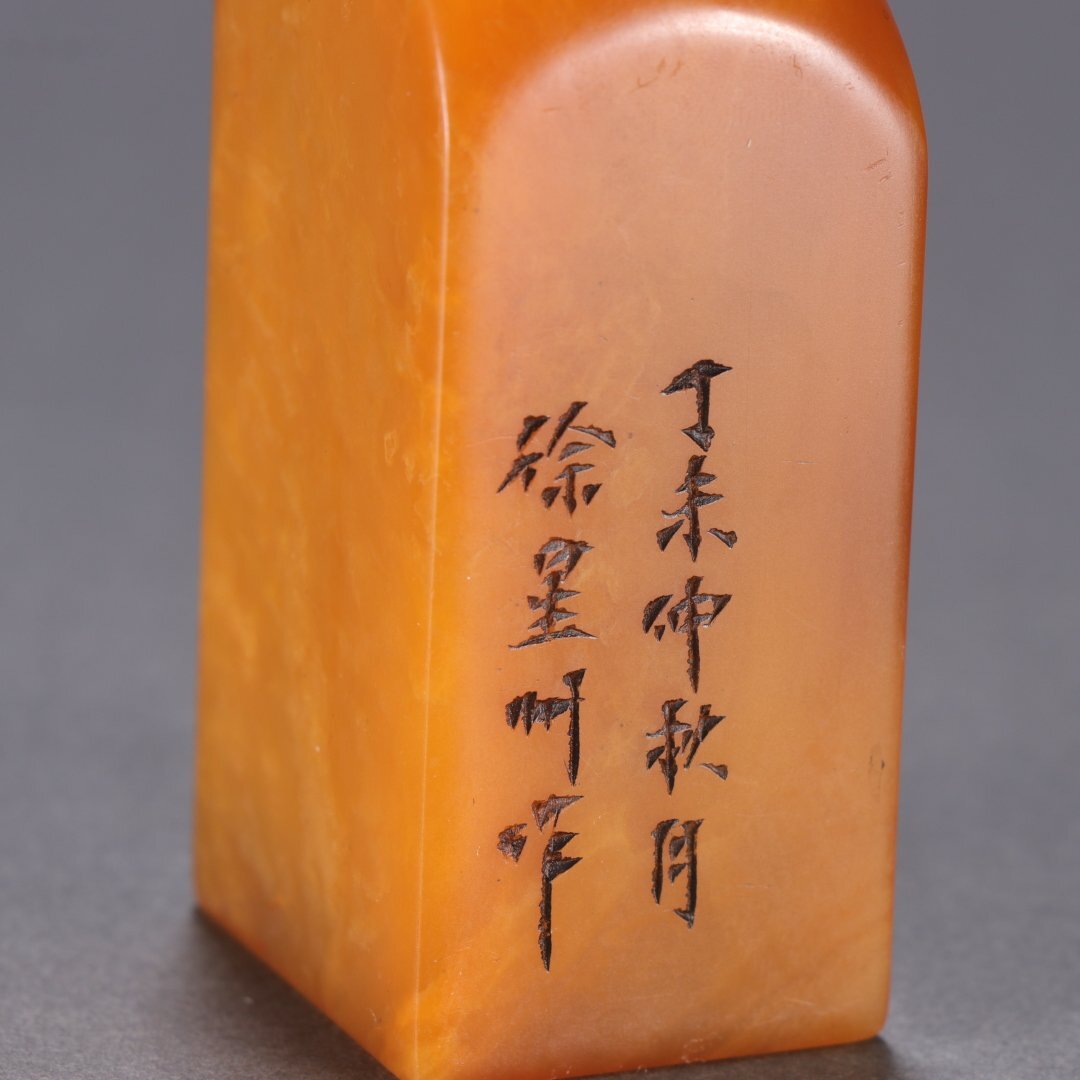 丁未仲秋月
徐星州作